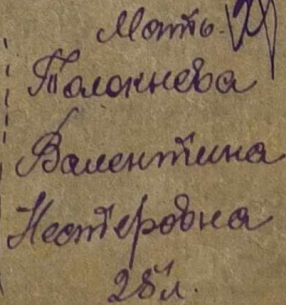 Мать.
Толокнева
Валентина
Нестеровна
28 л.